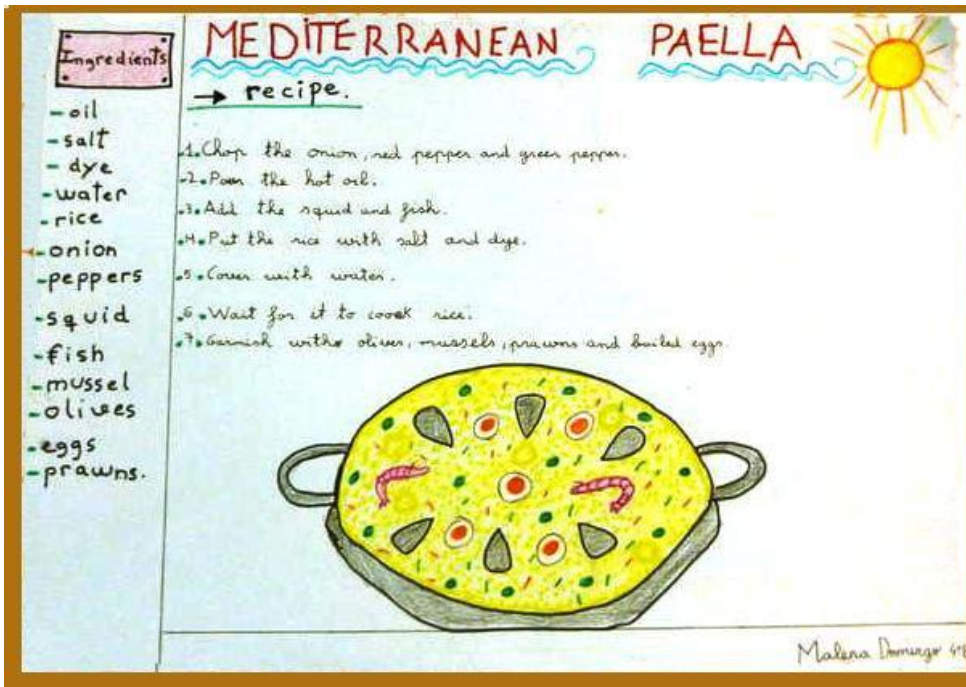 Ingredients
-oil
-salt
-dye
-water
-rice
-onion
-peppers
-squid
-fish
-mussel
-olives
-eggs
-prawns.
MEDITERRANEAN PAELLA
→ recipe.
1. Chop the onion, red pepper and green pepper.
2. Pour the hot oil.
3. Add the squid and fish.
4. Put the rice with salt and dye.
5. Cover with water.
6. Wait for it to coock rice.
7. Garnish with olives, mussels, prawns and boiled eggs.
Malena Domingo